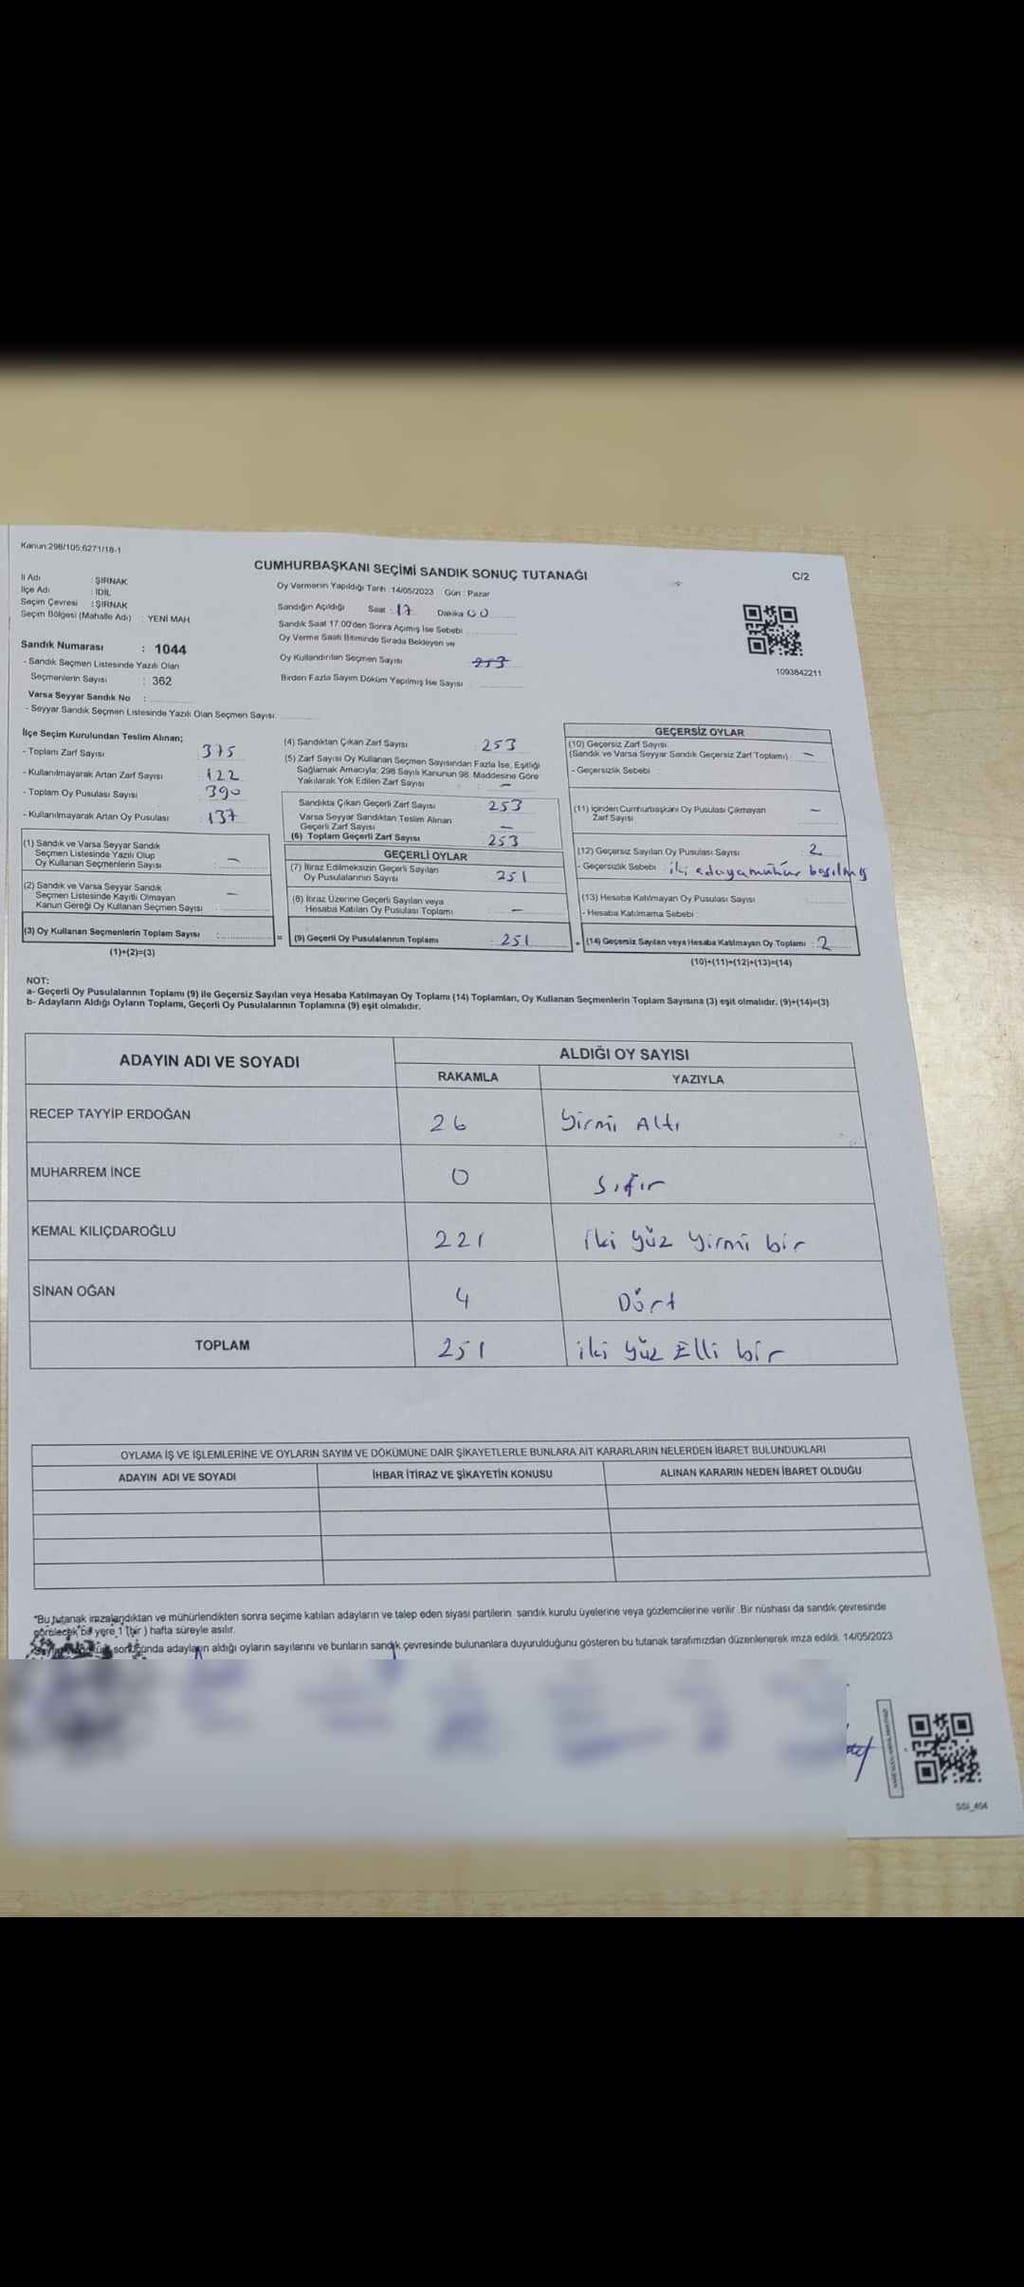 Kanun:298/105;6271/18-1
CUMHURBAŞKANI SEÇİMİ SANDIK SONUÇ TUTANAĞI
C/2
İl Adı : ŞIRNAK
İlçe Adı : İDİL
Seçim Çevresi : ŞIRNAK
Seçim Bölgesi (Mahalle Adı) YENİ MAH.
Sandık Numarası : 1044
- Sandık Seçmen Listesinde Yazılı Olan
Seçmenlerin Sayısı : 362
Varsa Seyyar Sandık No :
- Seyyar Sandık Seçmen Listesinde Yazılı Olan Seçmen Sayısı:
Oy Vermenin Yapıldığı Tarih :14/05/2023 Gün : Pazar
Sandığın Açıldığı Saat : 17 Dakika 00
Sandık Saat 17.00'den Sonra Açılmış İse Sebebi
Oy Verme Saati Bitiminde Sırada Bekleyen ve
Oy Kullandırılan Seçmen Sayısı 253
Birden Fazla Sayım Döküm Yapılmış İse Sayısı
1093842211
İlçe Seçim Kurulundan Teslim Alınan;
- Toplam Zarf Sayısı 375
- Kullanılmayarak Artan Zarf Sayısı 122
- Toplam Oy Pusulası Sayısı 390
- Kullanılmayarak Artan Oy Pusulası : 137
(1) Sandık ve Varsa Seyyar Sandık
Seçmen Listesinde Yazılı Olup
Oy Kullanan Seçmenlerin Sayısı : –
(2) Sandık ve Varsa Seyyar Sandık
Seçmen Listesinde Kayıtlı Olmayan
Kanun Gereği Oy Kullanan Seçmen Sayısı : –
(3) Oy Kullanan Seçmenlerin Toplam Sayısı :
(1)+(2)=(3)
(4) Sandıktan Çıkan Zarf Sayısı 253
(5) Zarf Sayısı Oy Kullanan Seçmen Sayısından Fazla İse, Eşitliği
Sağlamak Amacıyla; 298 Sayılı Kanunun 98. Maddesine Göre
Yakılarak Yok Edilen Zarf Sayısı : –
Sandıkta Çıkan Geçerli Zarf Sayısı 253
Varsa Seyyar Sandıktan Teslim Alınan
Geçerli Zarf Sayısı –
(6) Toplam Geçerli Zarf Sayısı 253
GEÇERLİ OYLAR
(7) İtiraz Edilmeksizin Geçerli Sayılan
Oy Pusulalarının Sayısı 251
(8) İtiraz Üzerine Geçerli Sayılan veya
Hesaba Katılan Oy Pusulası Toplamı –
= (9) Geçerli Oy Pusulalarının Toplamı : 251
GEÇERSİZ OYLAR
(10) Geçersiz Zarf Sayısı
(Sandık ve Varsa Seyyar Sandık Geçersiz Zarf Toplamı) –
- Geçersizlik Sebebi
(11) İçinden Cumhurbaşkanı Oy Pusulası Çıkmayan
Zarf Sayısı –
(12) Geçersiz Sayılan Oy Pusulası Sayısı 2
- Geçersizlik Sebebi iki adaya mühür basılmış
(13) Hesaba Katılmayan Oy Pusulası Sayısı
- Hesaba Katılmama Sebebi :
+ (14) Geçersiz Sayılan veya Hesaba Katılmayan Oy Toplamı : 2
(10)+(11)+(12)+(13)=(14)
NOT:
a- Geçerli Oy Pusulalarının Toplamı (9) ile Geçersiz Sayılan veya Hesaba Katılmayan Oy Toplamı (14) Toplamları, Oy Kullanan Seçmenlerin Toplam Sayısına (3) eşit olmalıdır. (9)+(14)=(3)
b- Adayların Aldığı Oyların Toplamı, Geçerli Oy Pusulalarının Toplamına (9) eşit olmalıdır.
ADAYIN ADI VE SOYADI ALDIĞI OY SAYISI
RAKAMLA YAZIYLA
RECEP TAYYİP ERDOĞAN 26 Yirmi Altı
MUHARREM İNCE 0 Sıfır
KEMAL KILIÇDAROĞLU 221 iki yüz yirmi bir
SİNAN OĞAN 4 Dört
TOPLAM 251 iki yüz Elli bir
OYLAMA İŞ VE İŞLEMLERİNE VE OYLARIN SAYIM VE DÖKÜMÜNE DAİR ŞİKAYETLERLE BUNLARA AİT KARARLARIN NELERDEN İBARET BULUNDUKLARI
ADAYIN ADI VE SOYADI İHBAR İTİRAZ VE ŞİKAYETİN KONUSU ALINAN KARARIN NEDEN İBARET OLDUĞU
*Bu tutanak imzalandıktan ve mühürlendikten sonra seçime katılan adayların ve talep eden siyasi partilerin sandık kurulu üyelerine veya gözlemcilerine verilir. Bir nüshası da sandık çevresinde
görülecek bir yere 1 (bir ) hafta süreyle asılır.
sonucunda adayların aldığı oyların sayılarını ve bunların sandık çevresinde bulunanlara duyurulduğunu gösteren bu tutanak tarafımızdan düzenlenerek imza edildi. 14/05/2023